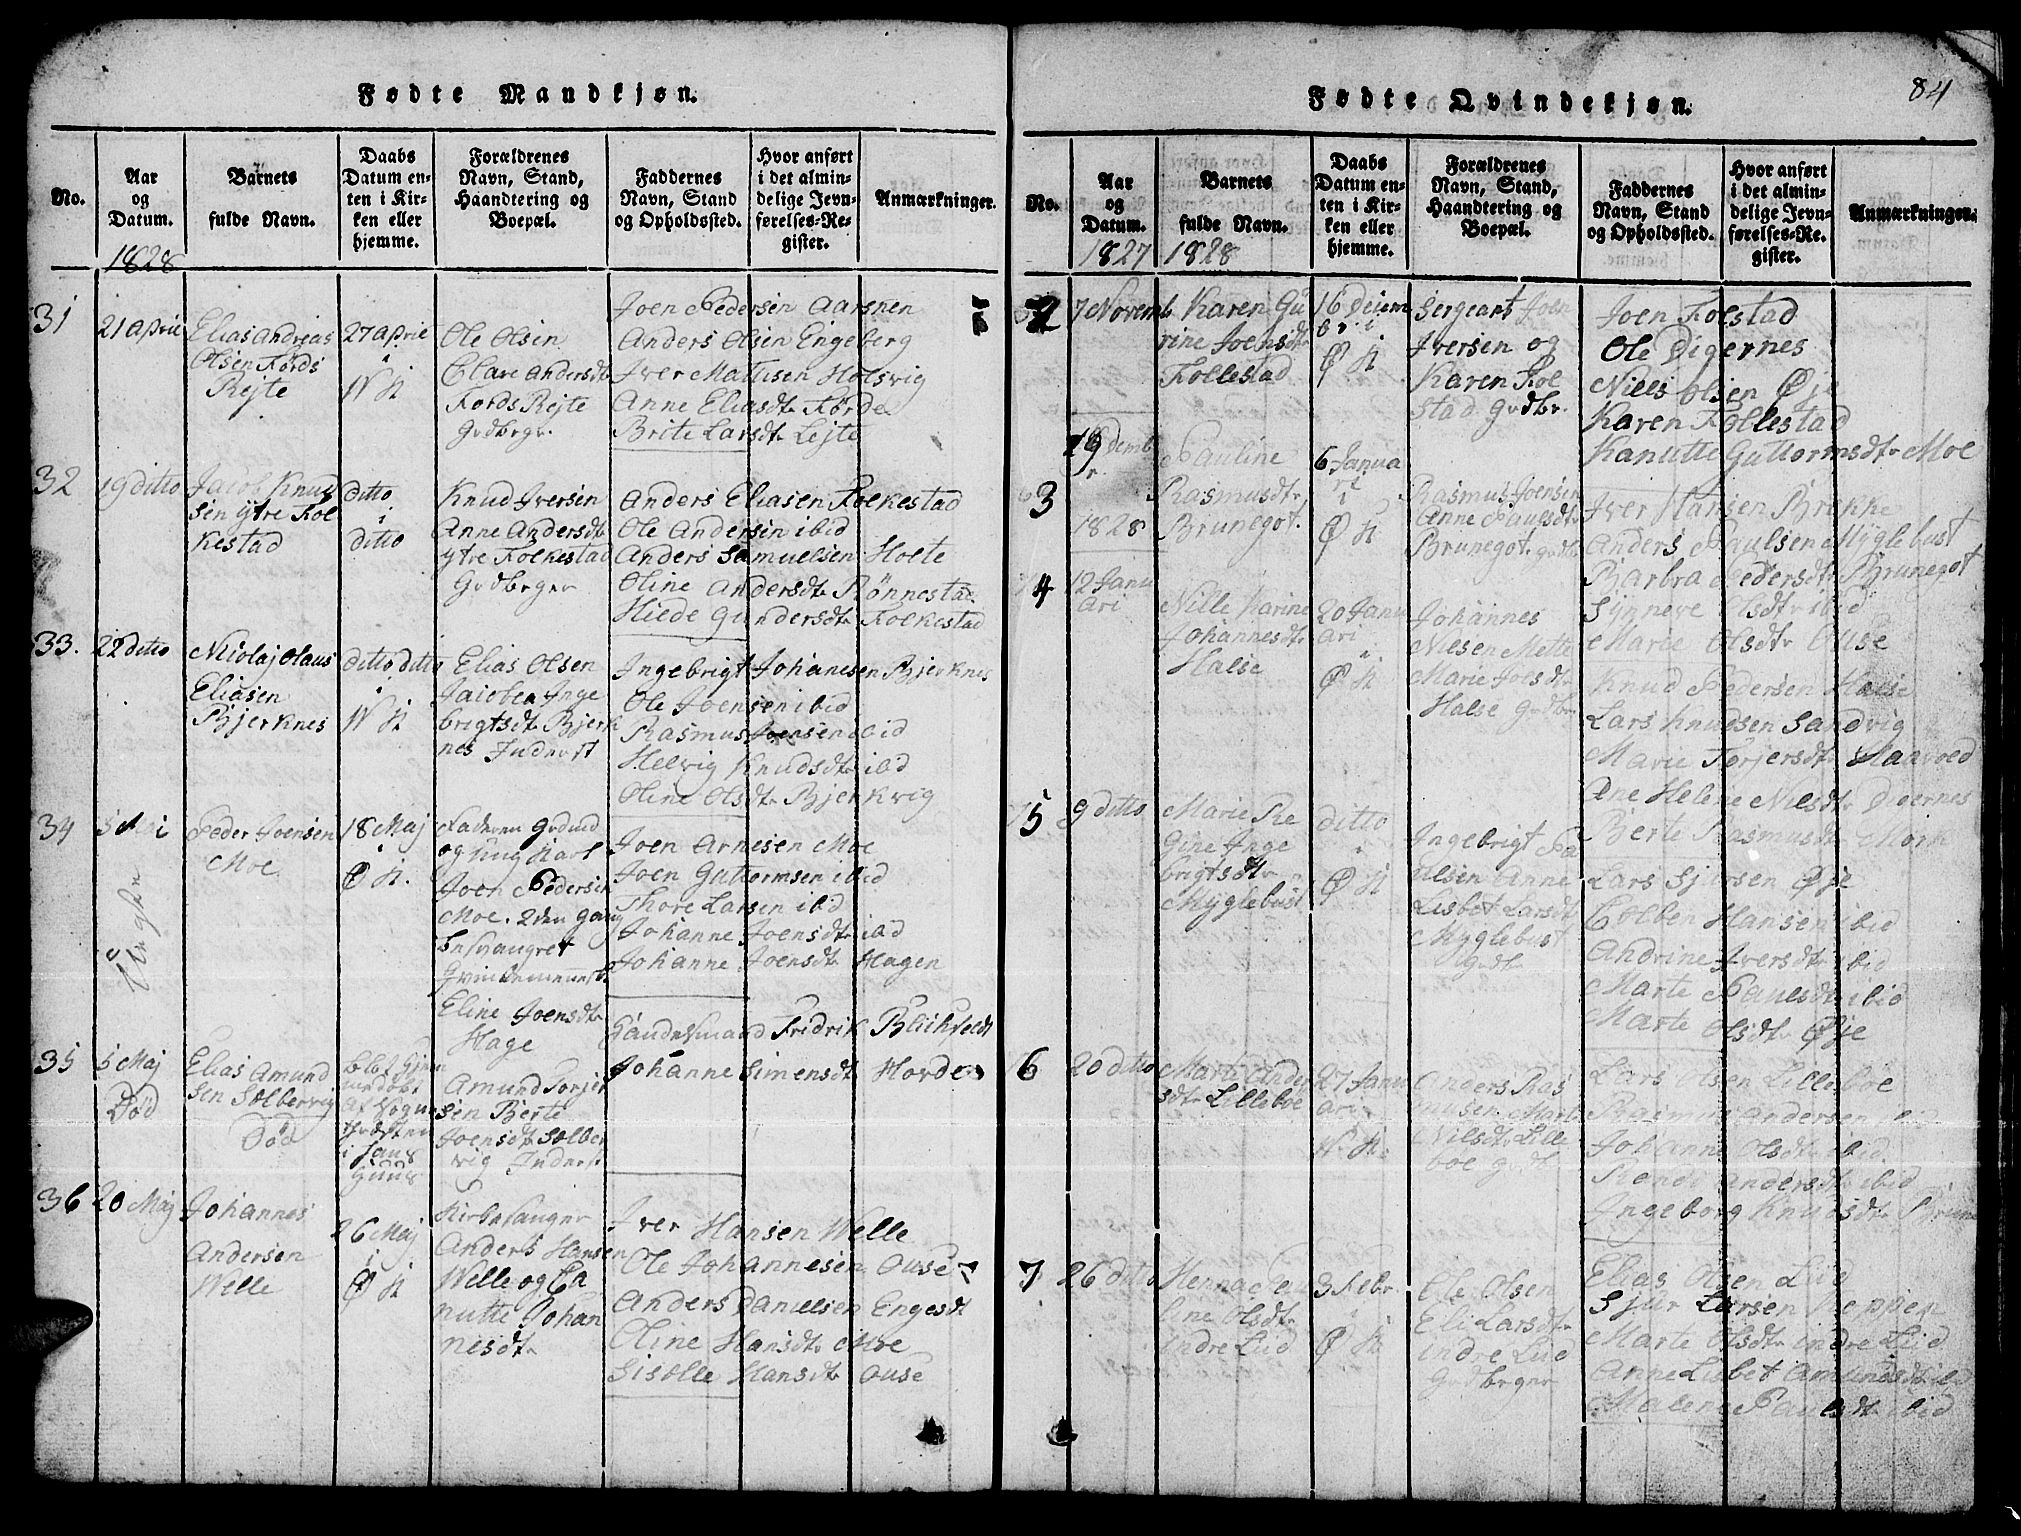 84
Fødte Mandkjøn.
No.
Aar
og
Datum.
1828
Barnets
fulde Navn.
Daabs
Datum en-
ten i Kir-
ken eller
hjemme.
Forældrenes
Navn, Stand,
Haandtering og
Boepæl.
Faddernes
Navn, Stand
og Opholdssted.
Hvor anført
i det almin-
delige Jevn-
førelses-Re-
gister.
Anmærkninger.
31
21 april
Elias Andreas
Olsen Førds
Rejte
27 april
i
N K
Ole Olsen
Andersdtr
Fords Rejte
Grdbrgr.
Joen Pedersen Aarsnen
Anders Olsen Engeberg
Iver Mattisen Holsvig
Anne Eliasdtr Førde
Brite Larsdtr Lejte
32
19 ditto
Jacob Knud
sen ytre Fol
kestad
ditto
i
ditto
Knud Iversen
Anne Andersdtr
ytre Folkestad
Grdbrger
Anders Eliasen Folkestad
Ole Andersen ibid
Anders Samuelsen Holte
Oline Andersdtr Rönnestad
Hiede Gundersdtr Folkestad
33.
22 ditto
Nicolaj Olaus
Eliasen
Bjerknes
ditto ditto
i
N K
Elias Olsen
Jacobea Inge
brigtsdtr Bjerk
nes Inderst
Ingebrigt Johanesen Bjerknes
Ole Joensen ibid
Rasmus Joensen ibid
Helvig Knudsdtr ibd
Oline Olsdtr Bjerkvig
34
5 Maj
Uægte
Peder Joensen
Moe
18 Maj
i
Ø K.
Faderen
og ung Karl
Joen Pedersen
Moe. 2den gang
besvangret
Qvindemennesk
Eline Joensdtr
Hage
Joen Arnesen Moe
Joen Guttormsen ibid
Thore Larsen ibid
Johanne Joensdtr ibd
Johanne Joensdtr Hagen
35
5 Maj
Død
Elias Amund
sen Solbervig
Død
i
Amund Torjer
sen Berte
Joensdtr Solber
vig Inderst
Fridrik Blichfeldt
Johanne Simensdtr Horde
36
20 Maj
Johannes
Andersen
Welle
26 Maj
i
Ø K
Kirkesanger
Anders Hansen
Welle og Ca
nutte Johan
nesdtr
Iver Hansen Welle
Ole Johannesen Ouse
Anders Danielsen Engesdt
Oline Hansdtr Moe
Sisølle Hansdtr Ouse
Fødte Qvindekjøn.
No.
Aar
og
Datum.
1827
Barnets
fulde Navn.
1828
Daabs
Datum en-
ten i Kir-
ken eller
hjemme.
Forældrenes
Navn, Stand,
Haandtering og
Boepæl.
Faddernes
Navn, Stand
og Opholdssted.
Hvor anført
i det almin-
delige Jevn-
førelses-Re-
gister.
Anmærkninger.
2
7 Novemb
Karen Gu
rine Joensdtr
Follestad
16 Decem
br i
Ø K
Sergeant Joen
Iversen og
Karen Fol
stad Grdbr.
Joen Folstad
Ole Digernes
Niels Olsen Øje
Karen Follestad
Kanutte Guttormsdtr Moe
3
19 Demb
r
1828
Pauline
Rasmusdtr
Brunegot.
6 Janua
ri
i
Ø K
Rasmus Joensen
Anne Paulsdtr
Brunegot Grdbr
Iver Hansen Brekke
Anders Paulsen Myglebust
Barbra Pedersdtr Brunegot
Synneve Olsdtr ibid
Marie Olsdtr Ouse
4
12 Janu
ari
Nille Karine
Johannesdtr
Halse
20 Janu
ari
i
Ø K
Johannes
Nielsen Mette
Marie Joelsdtr
Halse Grdbr
Knud Pedersen Halse
Lars Knudsen Sandvig
Marie Torjersdtr Haavoed
Ane Helene Nilsdtr Digernes
Berte Rasmusdtr Mork
5
9 ditto
Marie Re
gine Inge
brigtsdtr
Myglebust
ditto
i
Ø K
Ingebrigt Pa
ulsen Anne
Lisbet Larsdtr
Myglebust
Grdbr
Lars Sjursen Øje
Colben Hansen ibid
Andrine Iversdtr ibid
Marte Paulsdtr ibid
Marte Olsdtr Øje
6
20 ditto
Marte Ander
sdtr Lilleboe
27 Janu
ari
N K.
Anders Ras
musen Marte
Nilsdtr Lille
boe Grdb
Lars Olsen Lilleboe
Rasmus Andersen ibid
Johanne Olsdtr ibid
Rende Andersdtr ibid
Ingeborg Knudsdtr Brune
7
26 ditto
Olsdtr
indre Lid
3 Febr
i
Ø K
Ole Olsen
Eli Larsdtr
indre Lid
Grdbrger
Elias Olsen Lid
Sjur Larsen Neppen
Marte Olsdtr indre Lid
Anne Lisbet Amundsdtr ibid
Malene Paulsdtr ibid